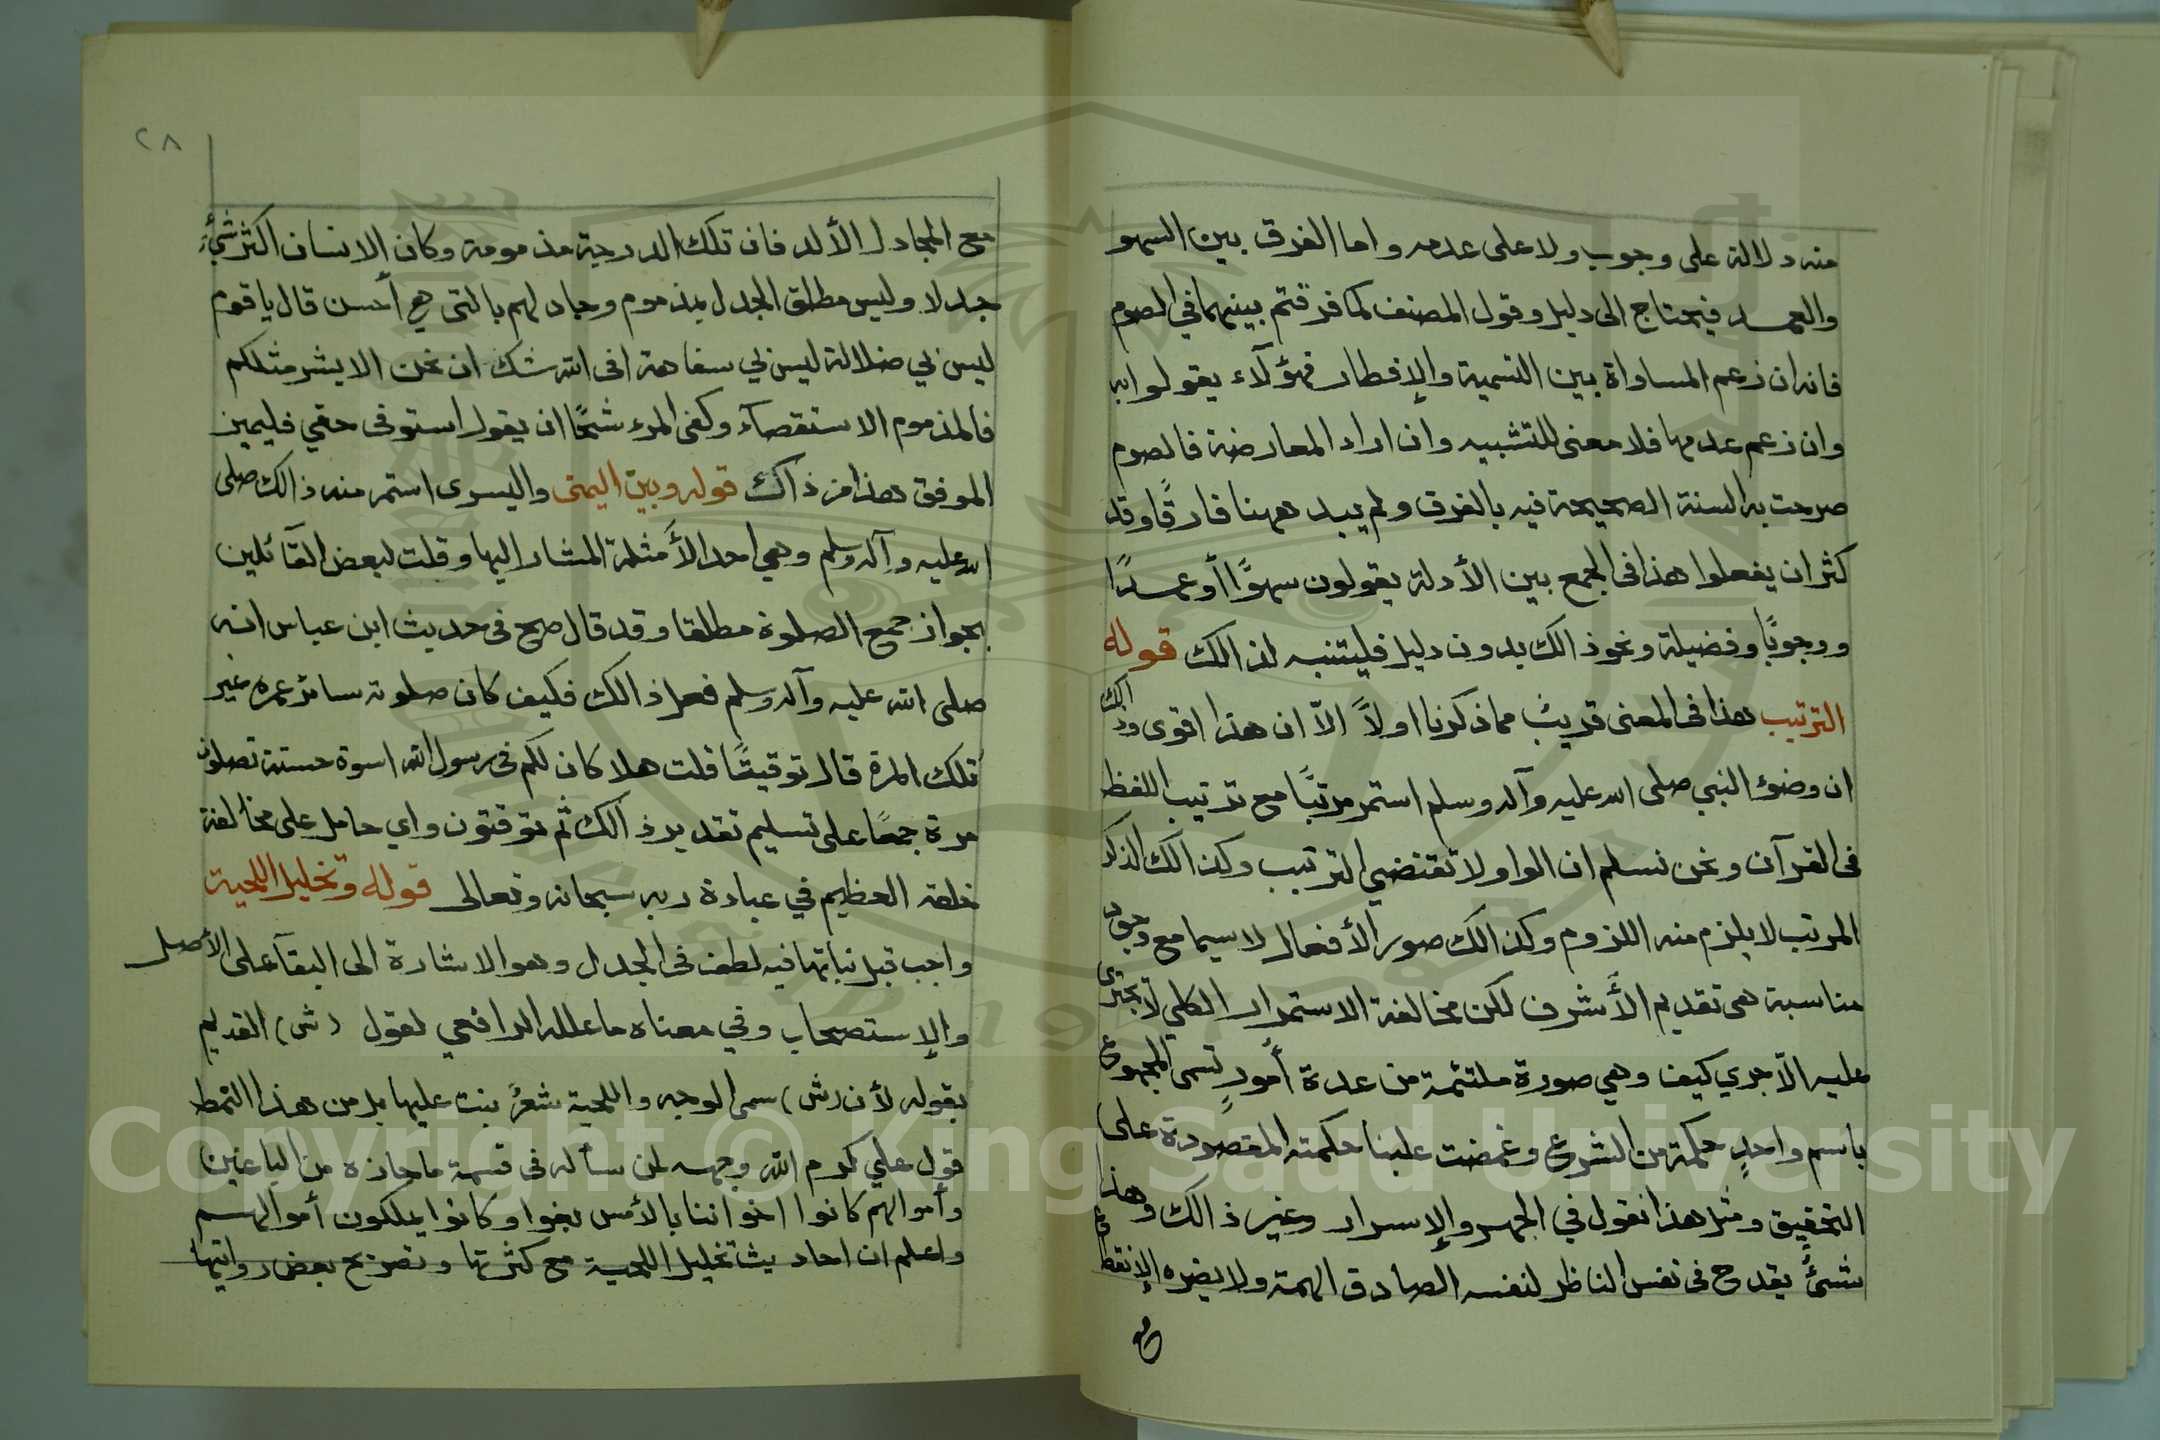 منه دلالة على وجوب ولا على عدمه واما الفرق بين السهو
والعمد فيحتاج الى دليل وقول المصنف كما فرقتم بينهما في الصوم
فانه ان زعم المساواة بين التسمية والإفطار فهؤلآء يقولوا به
وان زعم عدمها فلا معنى للتشبيه وان اراد المعارضة فالصوم
صرحت به السنة الصحيحة فيه بالفرق ولم يبد ههنا فارقًا وقد
كثر ان يفعلوا هذا فى الجمع بين الأدلة يقولون سهوًا أو عمدًا
ووجوبًا وفضيلة ونحو ذالك بدون دليل فليتنبه لذالك قوله
الترتيب هذا فى المعنى قريب مما ذكرنا اولاً الاّ ان هذا اقوى وذالك
ان وضوء النبي صلى الله عليه وآله وسلم استمر مرتبًا مع ترتيب اللفظ
فى القرآن ونحن نسلم ان الواو لا تقتضي الترتيب وكذالك الذكر
المرتب لا يلزم منه اللزوم وكذالك صور الأفعال لا سيما مع وجود
مناسبة هى تقديم الأشرف لكن مخالفة الاستمرار الكلي لا يجترى
عليه الاّ جري كيف وهي صورة ملتئمة من عدة أمورٍ تسمى المجموع
باسم واحدٍ حكمة من الشروع وغمضت علينا حكمته المقصودة على
التحقيق ومثل هذا نقول في الجهر والإسرار وغير ذالك وهذا
شئ يقدح فى نفس الناظر لنفسه الصادق الهمة ولا يضره الإنقطاع
مع
٢٨
مع المجادل الألد فان تلك الدرجة مذمومة وكان الانسان اكثر شئ
جدلا وليس مطلق الجدل بمذموم وجادلهم بالتى هي أحسن قال يا قوم
ليس بي ضلالة ليس بي سفاهة افى الله شك ان نحن الا بشر مثلكم
فالمذموم الاستقصآء وكفى المرء شحًا ان يقول استوفى حقي فليميز
الموفق هذا من ذالك قوله وبين اليمنى واليسرى استمر منه ذالك صلى
الله عليه وآله وسلم وهي احد الأمثلة المشار اليها وقلت لبعض القآئلين
بجواز جمع الصلوة مطلقا وقد قال صح فى حديث ابن عباس انه
صلى الله عليه وآله وسلم فعل ذالك فكيف كان صلوته سائر عمره غير
تلك المرة قال توقيتًا قلت هلا كان لكم فى رسول الله اسوة حسنة تصلون
مرة جمعًا على تسليم تقدير ذالك ثم توقتون واي حامل على مخالفة
خلقه العظيم في عبادة ربه سبحانه وتعالى قوله وتخليل اللحية
واجب قبل نباتها فيه لطف فى الجدل وهو الاشارة الى البقآء على الأصل
والإستصحاب وفي معناه ما علله الرافعي لقول (ش) القديم
بقوله لأن (ش) سمى الوجه واللحية شعرٌ ينبت عليها بل من هذا النمط
قول علي كرم الله وجهه لمن سأله فى قسمة ما حازه من الباغين
وأموالهم كانوا اخواننا بالأمس بغوا وكانوا يملكون أموالهم
واعلم ان احاديث تخليل اللحية مع كثرتها وتصريح بعض رواتها
Copyright © King Saud University